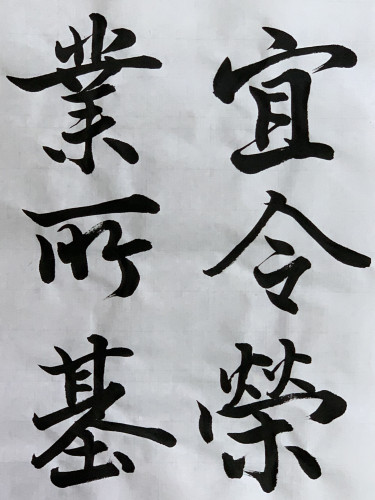 宜令榮
業所基